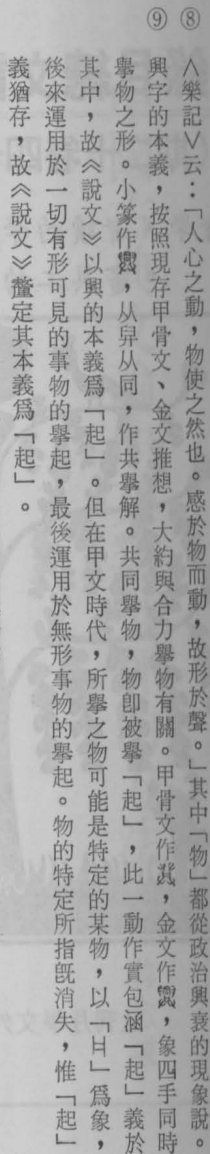 ⑧ ︿樂記﹀云：「人心之動，物使之然也。感於物而動，故形於聲。」其中「物」都從政治興衰的現象說。
⑨ 興字的本義，按照現存甲骨文、金文推想，大約與合力擧物有關。甲骨文作，金文作，象四手同時
擧物之形。小篆作，从舁从同，作共擧解。共同擧物，物卽被擧「起」，此一動作實包涵「起」義於
其中，故《說文》以興的本義爲「起」。但在甲文時代，所擧之物可能是特定的某物，以「」爲象，
後來運用於一切有形可見的事物的擧起，最後運用於無形事物的擧起。物的特定所指旣消失，惟「起」
義猶存，故《說文》釐定其本義爲「起」。